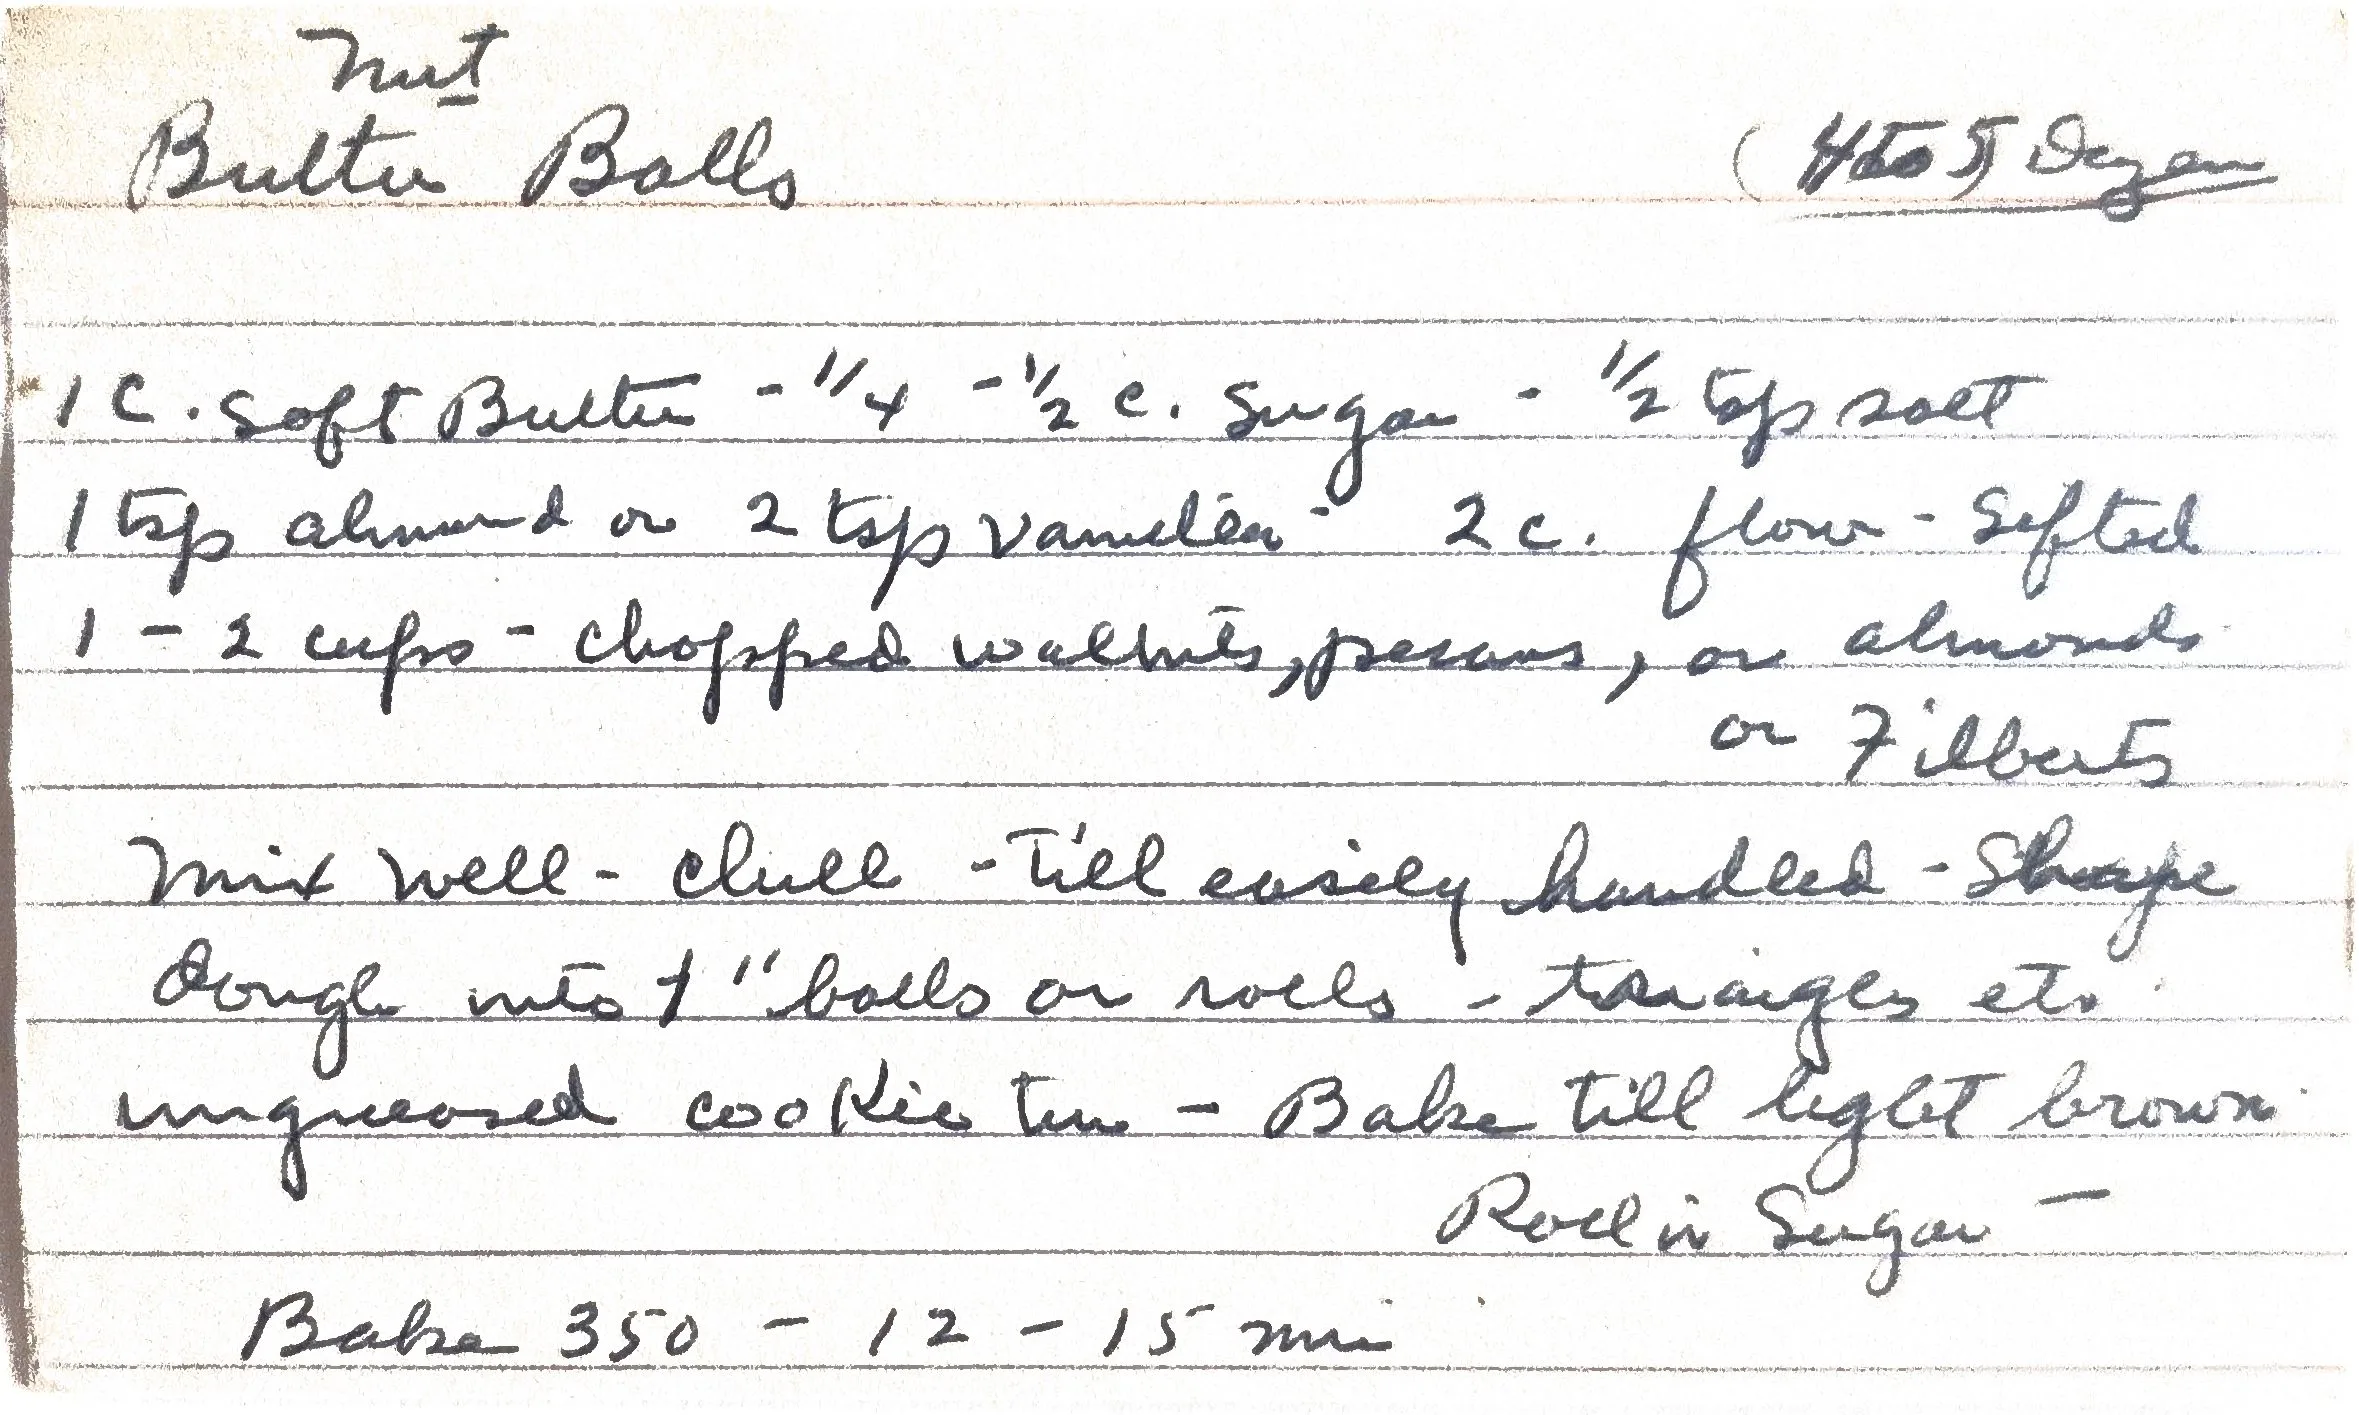 Nut
Butter Balls
(4 to 5) Dozen
1 c. soft Butter - 1/4 - 1/2 c. Sugar - 1/2 tsp salt
1 tsp almond or 2 tsp vanilla - 2 c. flour - Sifted
1 - 2 cups - chopped walnuts, pecans, or almonds
or Filberts
Mix well - chill - till easily handled - Shape
dough into 1" balls or rolls - triangles etc.
ungreased cookie tin - Bake till light brown.
Roll in Sugar -
Bake 350 - 12 - 15 min